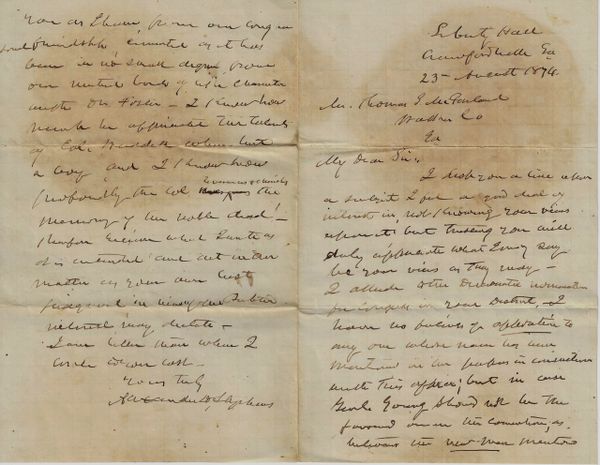 Liberty Hall
Crawfordville Ga
25 August 1874
Mr. Thomas
Co
Ga
My Dear Sir,
I drop you a line upon
a subject I feel a good deal of
interest in, not knowing your views
upon it but trusting you will
duly appreciate what I may say
be your views as they may —
I allude to the Democratic nomination
for congress in your District, I
have no feelings of opposition to
any one whose name has been
mentioned in the papers in connection
with this office; but in case
Young should not be the
favored one in the convention, as
between the new men mentioned
you as I have, from our long
friendship, cemented as it has
been in no small degree, from
our united
with Dr Foster — I know how
much he appreciated the talents
of Col. when but
a boy and I know how
profoundly the Col. the
memory of the noble dead! —
Therefore what I write as
it is intended and act in the
matter as your own best
judgment in view of the public
may dictate —
I am better than when I
wrote you last —
Yours truly
Alexander H. Stephens